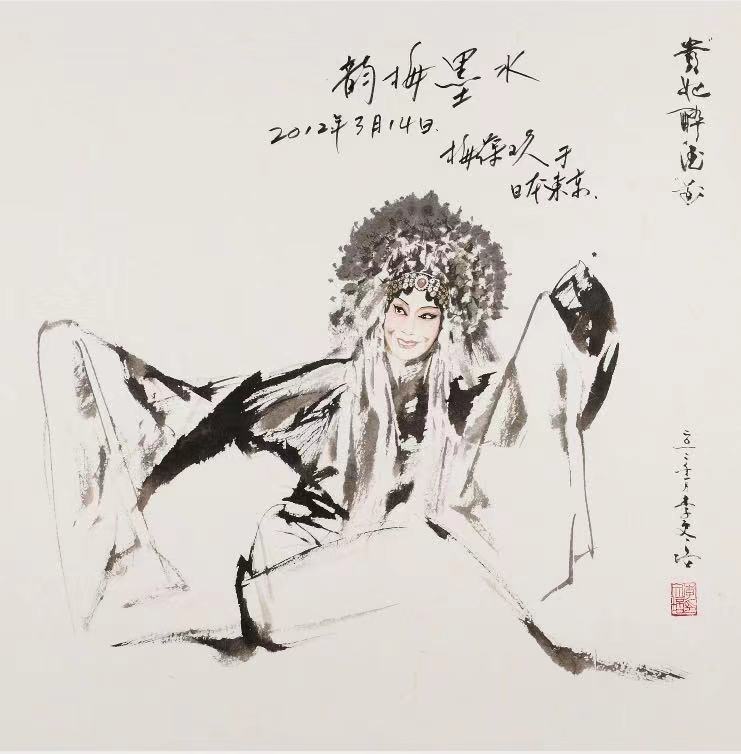 水墨梅韵
2012年3月14日.
梅葆玖于
日本東京.
貴妃醉酒
二〇一二年
李文培